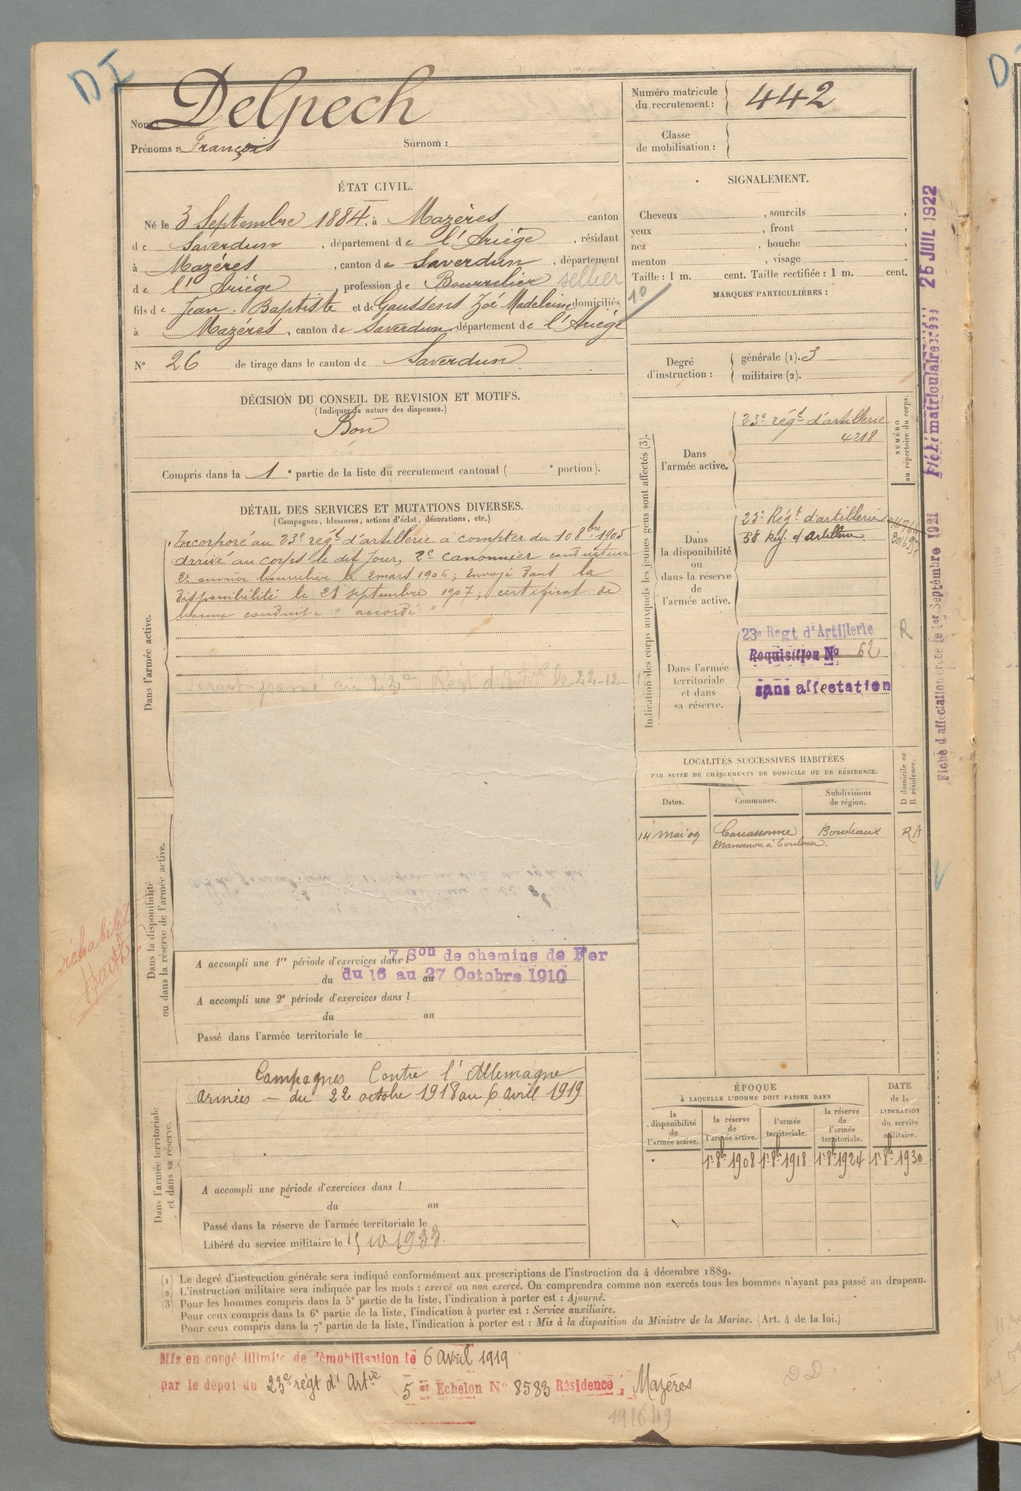 DI
Nom : Delpech
Prénoms : François Surnom :
Numéro matricule du recrutement : 442
Classe de mobilisation :
ÉTAT CIVIL.
Né le 3 Septembre 1884, à Mazères canton
de Saverdun, département de l'Ariège, résidant
à Mazères, canton de Saverdun, département
de l'Ariège profession de Bourrelier sellier
fils de Jean Baptiste et de Gaussens Zoé Madeleine domiciliés
à Mazères, canton de Saverdun, département de l'Ariège
N° 26 de tirage dans le canton de Saverdun
SIGNALEMENT.
Cheveux , sourcils ,
yeux , front ,
nez , bouche ,
menton , visage ,
Taille : 1 m. cent. Taille rectifiée : 1 m. cent.
MARQUES PARTICULIÈRES :
10
Degré d'instruction : générale (1). 3
militaire (2).
DÉCISION DU CONSEIL DE REVISION ET MOTIFS.
(Indiquer la nature des dispenses.)
Bon
Compris dans la 1e partie de la liste du recrutement cantonal ( e portion).
DÉTAIL DES SERVICES ET MUTATIONS DIVERSES.
(Campagnes, blessures, actions d'éclat, décorations, etc.)
Dans l'armée active.
Incorporé au 23e régt d'artillerie à compter du 10 8bre 1905
arrivé au corps le dit jour, 2e canonnier conducteur
bourrelier le 2 mars 1906; Envoyé dans la
disponibilité le 28 septembre 1907; certificat de
bonne conduite "accordé"
passé au 23e Régt d' le 22-12-
Dans la disponibilité
ou dans la réserve de l'armée active.
A accompli une 1re période d'exercices dans l 7 Son de chemins de Fer
du 16 au 27 Octobre 1910
A accompli une 2e période d'exercices dans l
du au
Passé dans l'armée territoriale le
Dans l'armée territoriale
et dans sa réserve.
Campagnes Contre l'Allemagne
armées — du 22 octobre 1918 au 6 avril 1919
A accompli une période d'exercices dans l
du au
Passé dans la réserve de l'armée territoriale le
Libéré du service militaire le 1933
réhabilité
Indication des corps auxquels les jeunes gens sont affectés (3).
NUMÉRO
au répertoire du corps.
Dans
l'armée active.
23e régt d'artillerie
4218
Dans
la disponibilité
ou dans la réserve
de l'armée active.
23e Régt d'artillerie
58 Regt d'Artillerie
Dans l'armée
territoriale
et dans
sa réserve.
23e Regt d'Artillerie
Requisition N° 62
sans affectation
R
LOCALITÉS SUCCESSIVES HABITÉES
PAR SUITE DE CHANGEMENTS DE DOMICILE OU DE RÉSIDENCE.
Dates. Communes. Subdivisions de région. D domicile ou R résidence.
14 mai 09 Carcassonne Bordeaux R
ÉPOQUE
À LAQUELLE L'HOMME DOIT PASSER DANS
DATE de la LIBÉRATION du service militaire.
la disponibilité de l'armée active. la réserve de l'armée active. l'armée territoriale. la réserve de l'armée territoriale.
1er 8b 1908 1er 8b 1918 1er 8b 1924 1er 8b 1930
(1) Le degré d'instruction générale sera indiqué conformément aux prescriptions de l'instruction du 4 décembre 1889.
(2) L'instruction militaire sera indiquée par les mots : exercé ou non exercé. On comprendra comme non exercés tous les hommes n'ayant pas passé au drapeau.
(3) Pour les hommes compris dans la 5e partie de la liste, l'indication à porter est : Ajourné.
Pour ceux compris dans la 6e partie de la liste, l'indication à porter est : Service auxiliaire.
Pour ceux compris dans la 7e partie de la liste, l'indication à porter est : Mis à la disposition du Ministre de la Marine. (Art. 4 de la loi.)
Mis en congé illimité de démobilisation le 6 avril 1919
par le dépôt du 23e régt d'Artie 5 Echelon N° 8583 Résidence : Mazères
Fiche d'affectation créée le 1er Septembre 1921 26 JUIL 1922
D